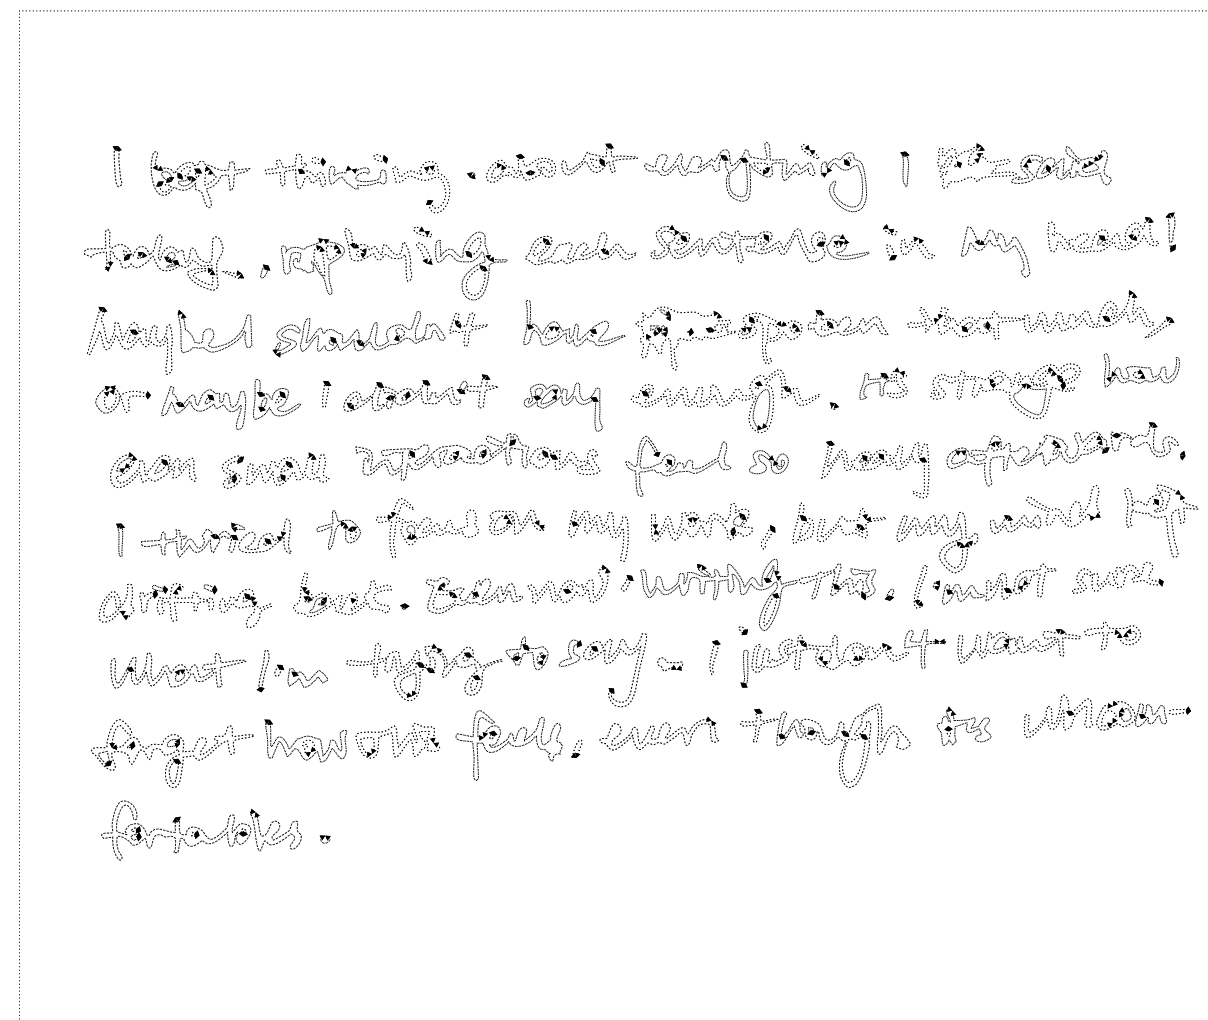 I kept thinking about everything I said
today, replaying each sentence in my head!
Maybe I shouldn't have spoken that much,
or maybe I didn't say enough. It's strange how
even small interactions feel so heavy afterwards.
I tried to focus on my work, but my mind kept
drifting back. Even now, writing this, I'm not sure
what I'm trying to say. I just don't want to
forget how this feels, even though its uncom-
fortables.